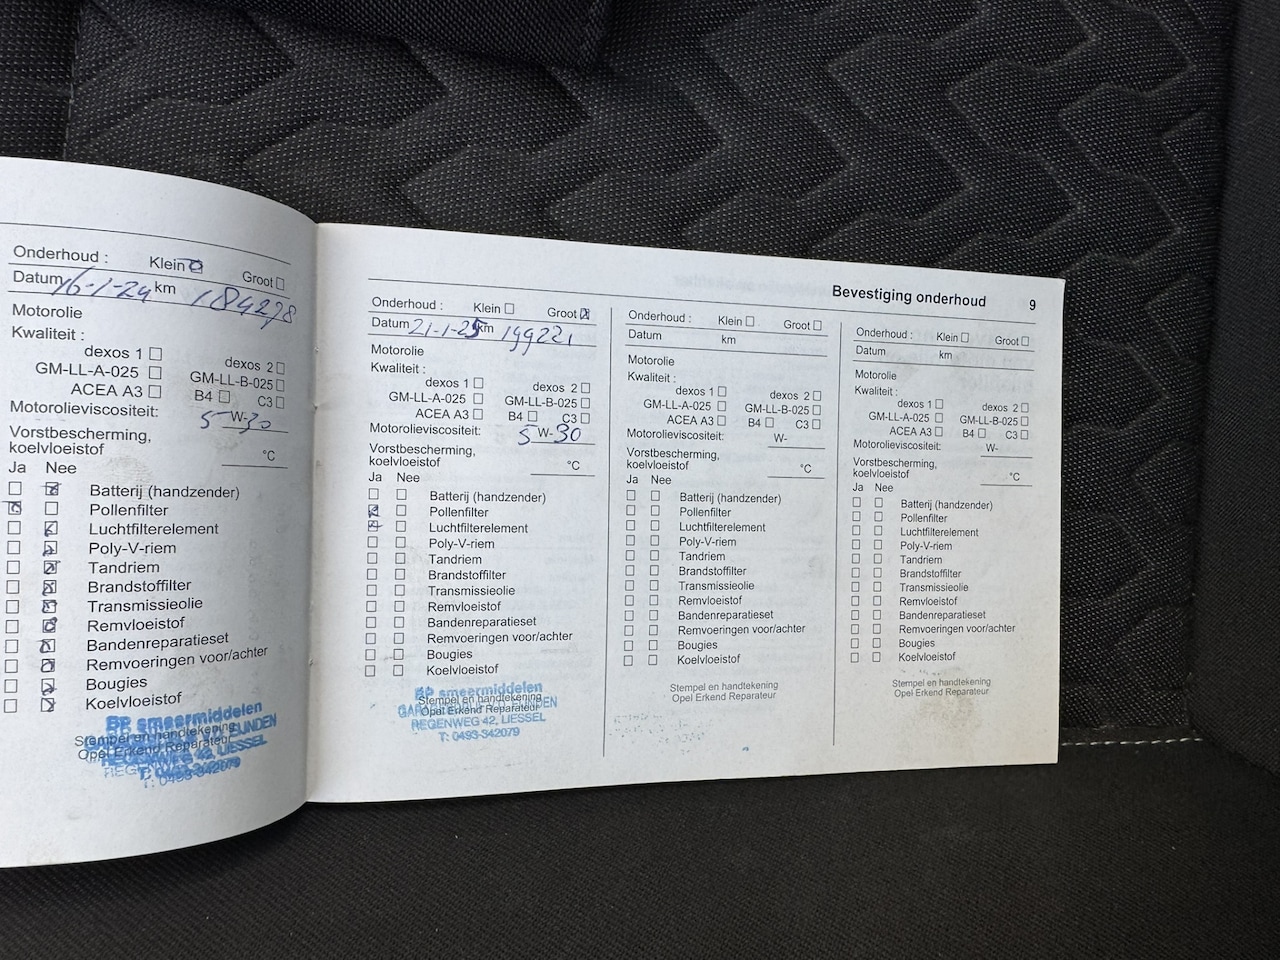 Onderhoud : Klein Groot
Datum 16-1-24 km 184278
Motorolie
Kwaliteit :
dexos 1 dexos 2
GM-LL-A-025 GM-LL-B-025
ACEA A3 B4 C3
Motorolieviscositeit: 5 W-30
Vorstbescherming,
koelvloeistof °C
Ja Nee
Batterij (handzender)
Pollenfilter
Luchtfilterelement
Poly-V-riem
Tandriem
Brandstoffilter
Transmissieolie
Remvloeistof
Bandenreparatieset
Remvoeringen voor/achter
Bougies
Koelvloeistof
BP smeermiddelen
Stempel en handtekening
Opel Erkend Reparateur
REGENWEG 42, LIESSEL
T: 0493-342079
Bevestiging onderhoud 9
Onderhoud : Klein Groot
Datum 21-1-25 km 199221
Motorolie
Kwaliteit :
dexos 1 dexos 2
GM-LL-A-025 GM-LL-B-025
ACEA A3 B4 C3
Motorolieviscositeit: 5 W-30
Vorstbescherming,
koelvloeistof °C
Ja Nee
Batterij (handzender)
Pollenfilter
Luchtfilterelement
Poly-V-riem
Tandriem
Brandstoffilter
Transmissieolie
Remvloeistof
Bandenreparatieset
Remvoeringen voor/achter
Bougies
Koelvloeistof
BP smeermiddelen
Stempel en handtekening
Opel Erkend Reparateur
REGENWEG 42, LIESSEL
T: 0493-342079
Onderhoud : Klein Groot
Datum km
Motorolie
Kwaliteit :
dexos 1 dexos 2
GM-LL-A-025 GM-LL-B-025
ACEA A3 B4 C3
Motorolieviscositeit: W-
Vorstbescherming,
koelvloeistof °C
Ja Nee
Batterij (handzender)
Pollenfilter
Luchtfilterelement
Poly-V-riem
Tandriem
Brandstoffilter
Transmissieolie
Remvloeistof
Bandenreparatieset
Remvoeringen voor/achter
Bougies
Koelvloeistof
Stempel en handtekening
Opel Erkend Reparateur
Onderhoud : Klein Groot
Datum km
Motorolie
Kwaliteit :
dexos 1 dexos 2
GM-LL-A-025 GM-LL-B-025
ACEA A3 B4 C3
Motorolieviscositeit: W-
Vorstbescherming,
koelvloeistof °C
Ja Nee
Batterij (handzender)
Pollenfilter
Luchtfilterelement
Poly-V-riem
Tandriem
Brandstoffilter
Transmissieolie
Remvloeistof
Bandenreparatieset
Remvoeringen voor/achter
Bougies
Koelvloeistof
Stempel en handtekening
Opel Erkend Reparateur